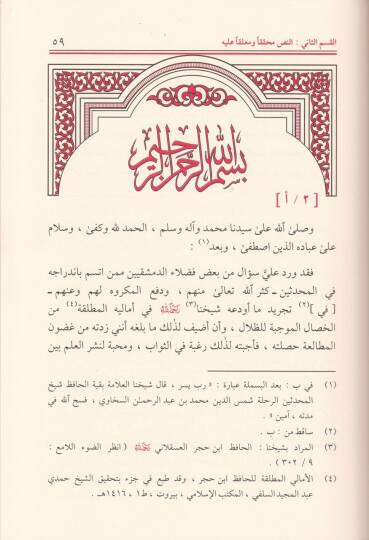 القسم الثاني : النص محققاً ومعلقاً عليه ٥٩
بسم الله الرحمن الرحيم
[ ٢ / أ ]
وصلىٰ الله علىٰ سيدنا محمد وآله وسلم ، الحمد لله وكفىٰ ، وسلام
علىٰ عباده الذين اصطفىٰ ، وبعد(١) :
فقد ورد عليَّ سؤال من بعض فضلاء الدمشقيين ممن اتسم باندراجه
في المحدثين ـ كثَّر الله تعالىٰ منهم ، ودفع المكروه لهم وعنهم ـ
[ في ](٢) تجريد ما أودعه شيخنا(٣) رحمه الله في أماليه المطلقة(٤) من
الخصال الموجبة للظلال ، وأن أضيف لذلك ما بلغه أنني زدته من غضون
المطالعة حصلته ، فأجبته لذلك رغبة في الثواب ، ومحبة لنشر العلم بين
(١) في ب : بعد البسملة عبارة : « رب يسر ، قال شيخنا العلامة بقية الحافظ شيخ
المحدثين الرحلة شمس الدين محمد بن عبد الرحمٰن السخاوي ، فسح الله في
مدته ، آمين » .
(٢) ساقط من : ب .
(٣) المراد بشيخنا : الحافظ ابن حجر العسقلاني رحمه الله ( انظر الضوء اللامع :
٩ / ٣٠٢ ) .
(٤) الأمالي المطلقة للحافظ ابن حجر ، وقد طبع في جزء بتحقيق الشيخ حمدي
عبد المجيد السلفي ، المكتب الإسلامي ، بيروت ، ط١ ، ١٤١٦هـ .